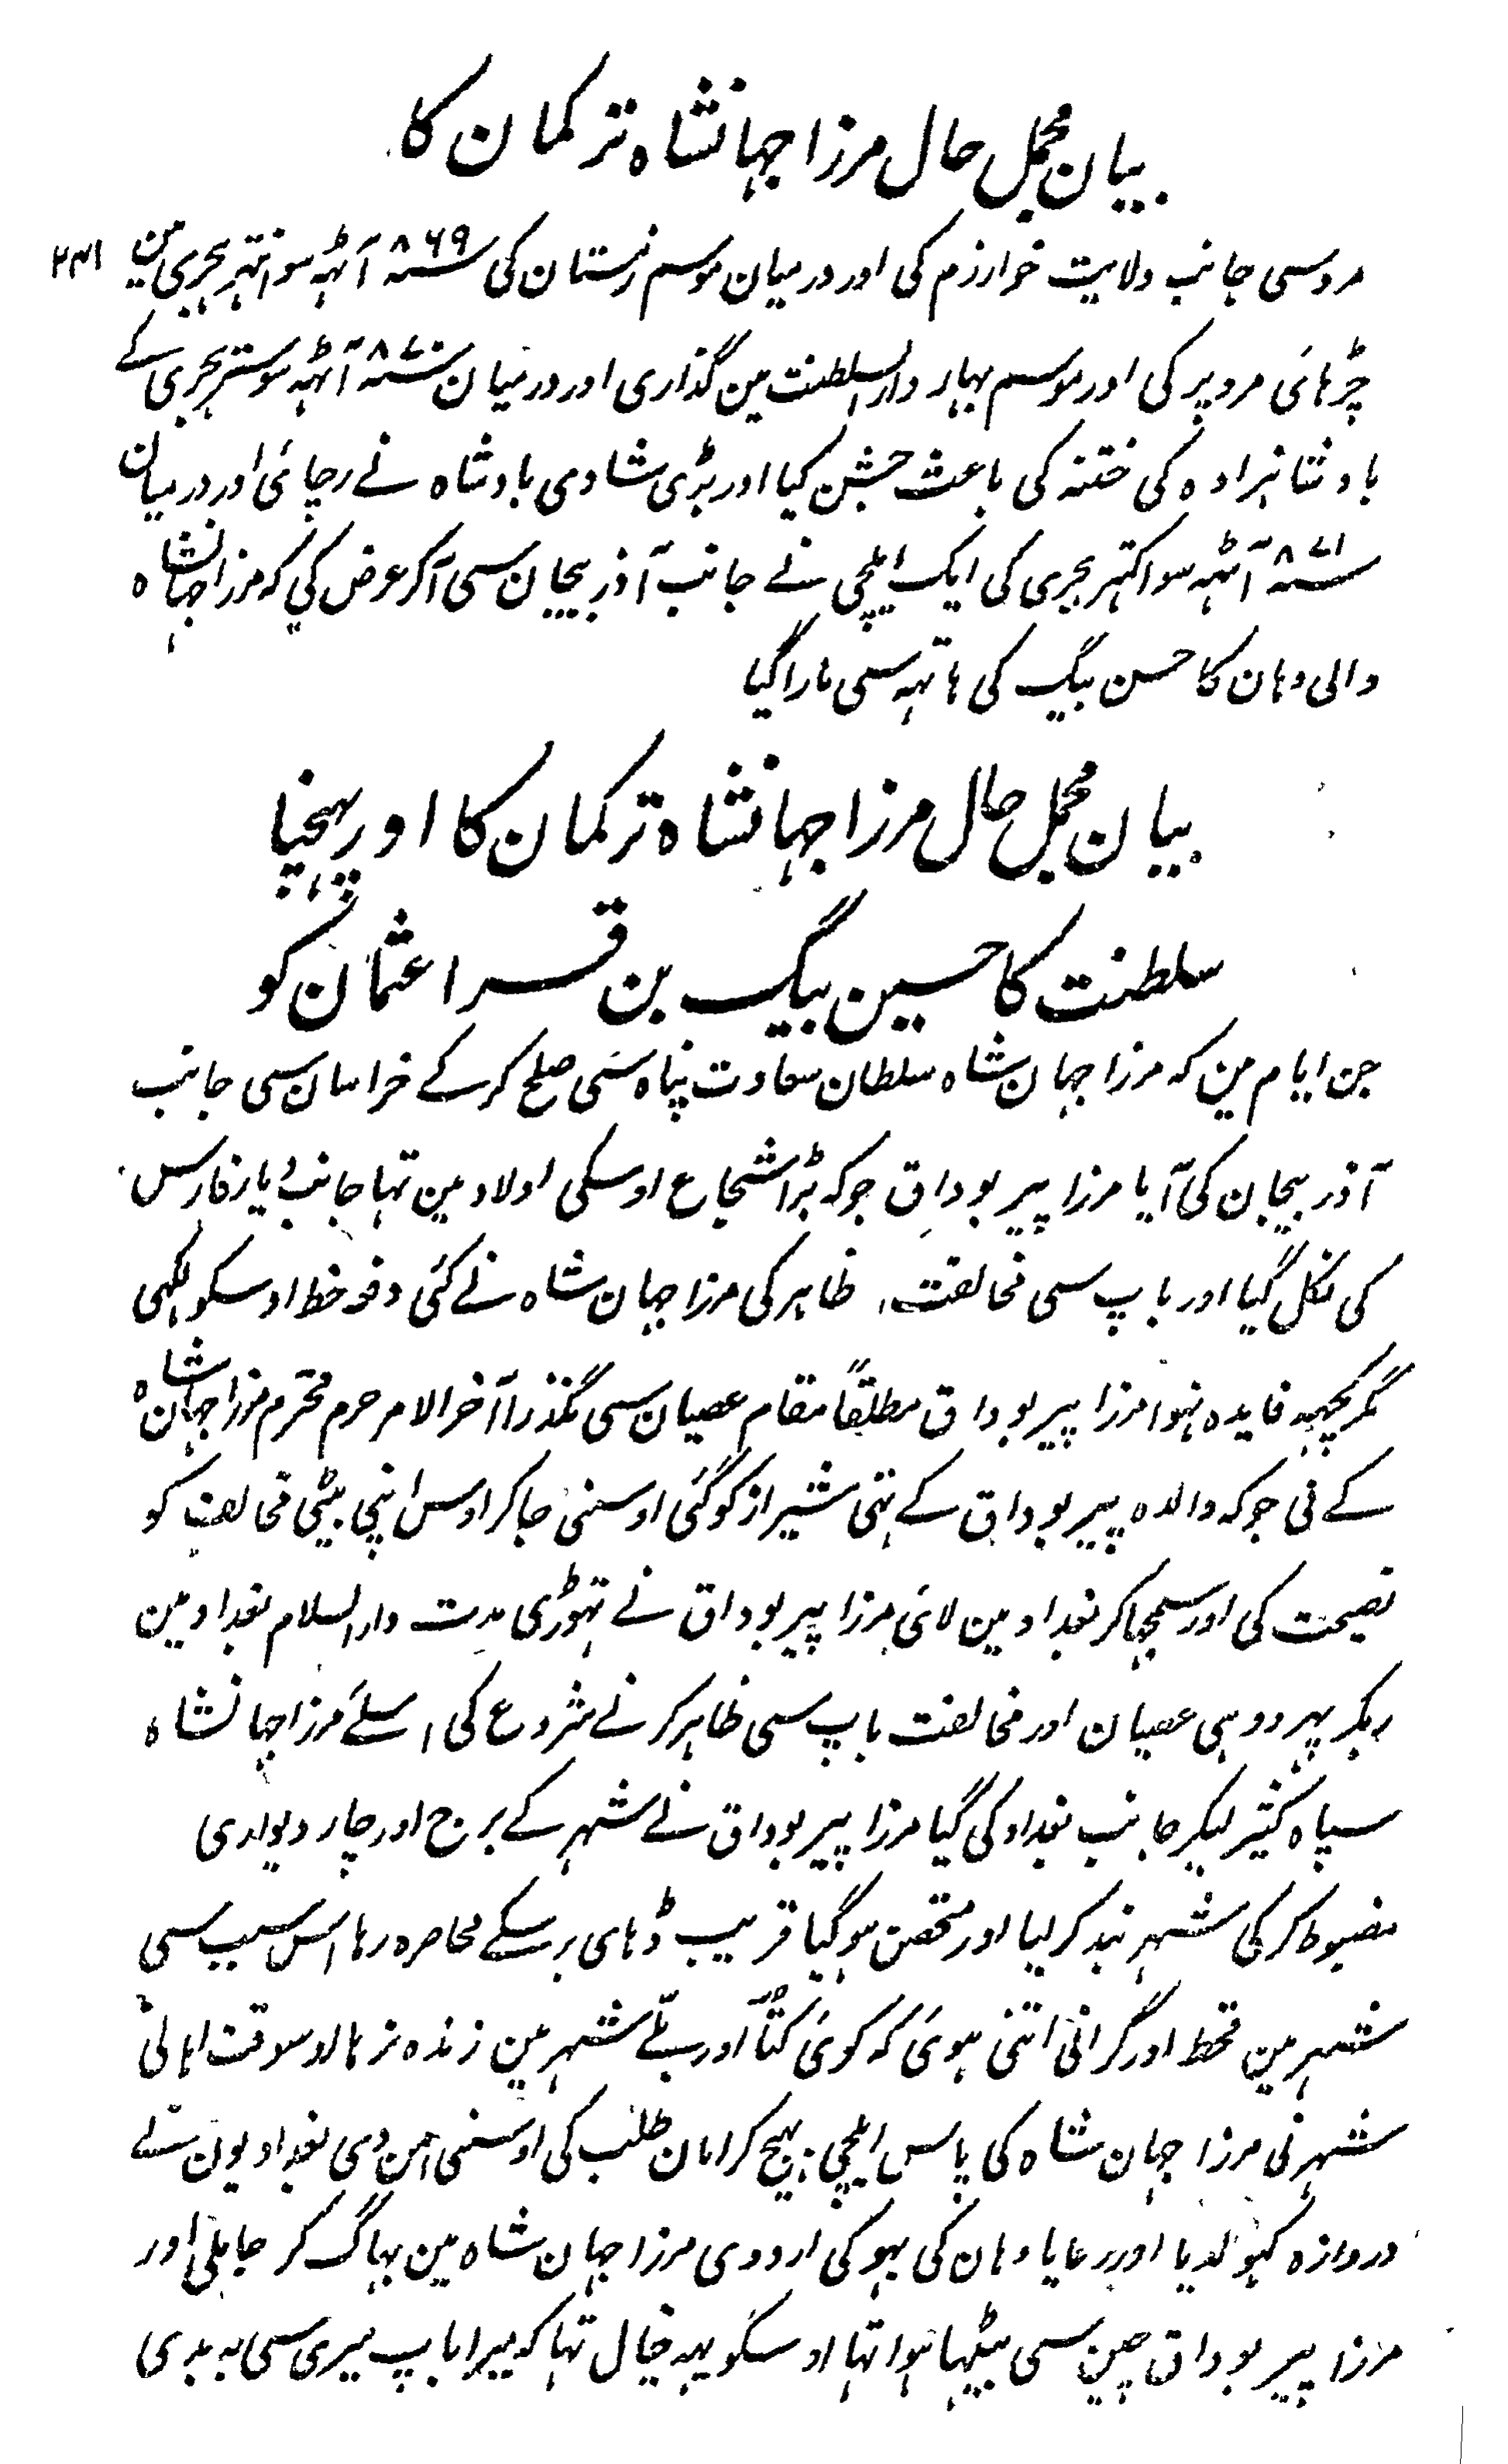 بیان مجمل حال مرزا جہانشاہ ترکمان کا
۲۳۱
مروسی جانب ولایت خوارزم کی اور درمیان موسم زمستان کی ۸۶۹ سنہ آٹہہ سو انہتر ہجری مین
چڑہائی مرو پر کی اور موسم بہار دار السلطنت مین گذاری اور درمیان ۸۷۰ سنہ آٹہہ سو ستر ہجری کے
بادشاہزادہ کی ختنہ کی باعث جشن کیا اور بڑی شادی بادشاہ نے رچائی اور درمیان
۸۷۱ سنہ آٹہہ سو اکہتر ہجری کی ایک ایلچی نے جانب آذربیجان سی آکر عرض کی کہ مرزا جہانشاہ
والی وہان کا حسن بیگ کی ہاتہہ سی مارا گیا
بیان مجمل حال مرزا جہانشاہ ترکمان کا اور پہنچنا
سلطنت کا حسین بیگ بن قرا عثمان کو
جن ایام مین کہ مرزا جہان شاہ سلطان سعادت پناہ سی صلح کر کے خراسان سی جانب
آذربیجان کی آیا مرزا پیر بوداق جو کہ بڑا شجاع اوسکی اولاد مین تہا جانب دیار فارس
کی نکل گیا اور باپ سی مخالفت ظاہر کی مرزا جہان شاہ نے کئی دفعہ خط اوسکو لکہی
مگر کچہہ فایدہ نہوا مرزا پیر بوداق مطلقاً مقام عصیان سی نگذرا آخر الامر حرم محترم مرزا جہان شاہ
کے نی جو کہ والدہ پیر بوداق کے تہی شیراز کو گئی اوسنی جاکر اوس اپنی بیٹی مخالف کو
نصیحت کی اور سمجہاکر بغداد مین لائی مرزا پیر بوداق نے تہوڑی مدت دار السلام بغداد مین
رہکر پہر ووہی عصیان اور مخالفت باپ سی ظاہر کرنے شروع کی اسلئے مرزا جہانشاہ
سپاہ کثیر لیکر جانب بغداد کی گیا مرزا پیر بوداق نے شہر کے برج اور چار دیواری
مضبوط کر کی شہر بند کر لیا اور متحصن ہو گیا قریب ڈہای برسکے محاصرہ رہا اس سبب سی
شہر مین قحط اور گرانی اتنی ہوئی کہ کوئی کتّا اور بلّے شہر مین زندہ نرہا اوسوقت اہالی
شہر نی مرزا جہان شاہ کی پاس ایلچی بہیج کر امان طلب کی اوسنی امن دی بغدادیون نے
دروازہ کہولدیا اور رعایا وہان کی بہوکی اردوی مرزا جہان شاہ مین بہاگ کر جا ملی اور
مرزا پیر بوداق چین سی بیٹہا ہوا تہا اوسکو یہہ خیال تہا کہ میرا باپ میری سی بہ بدی